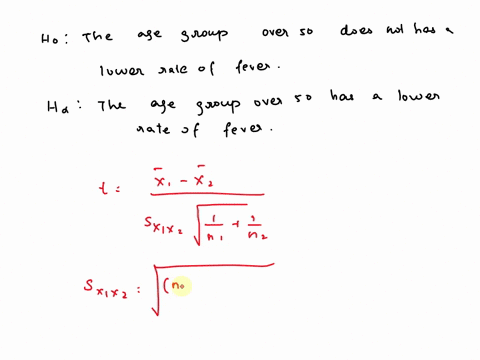 H₀: The age group over 50 does not has a
lower rate of fever.
Hα: The age group over 50 has a lower
rate of fever.
t = (x̄₁ - x̄₂) / (Sx₁x₂ √(1/n₁ + 1/n₂))
Sx₁x₂ = √((n₀